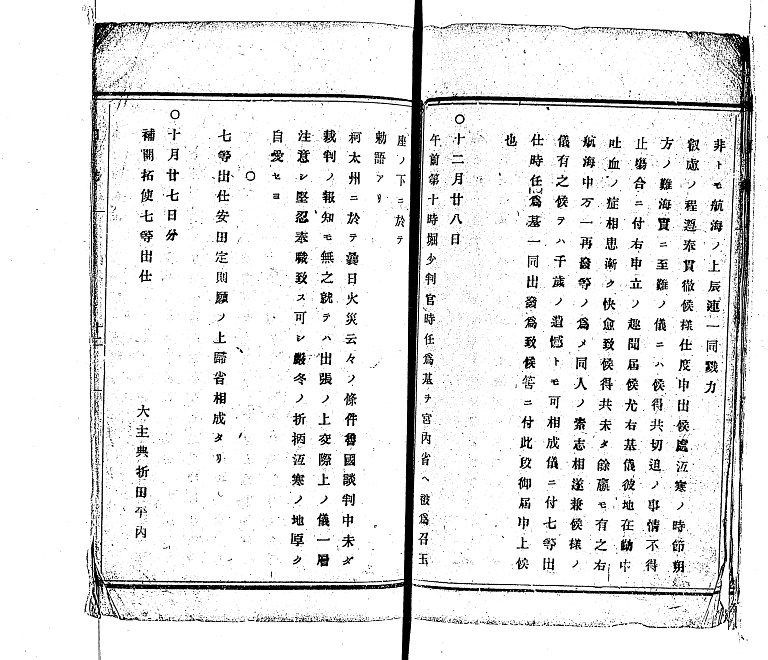 非トモ航海ノ上辰連一同戮力
叡慮ノ程遵奉貫徹候様仕度申出候處沍寒ノ時節朔
方ノ難海實ニ至難ノ儀ニハ候得共切迫ノ事情不得
止塲合ニ付右申立ノ趣聞届候尤右基儀彼地在勤中
吐血ノ症相患漸ク快愈致候得共未タ餘羸モ有之右
航海中万一再發等ノ爲メ同人ノ素志相遂兼候様ノ
儀有之候テハ千歳ノ遺憾トモ可相成儀ニ付七等出
仕時任爲基一同出發爲致候筈ニ付此段御届申上候
也
〇十二月廿八日
午前第十時堀少判官時任爲基ヲ宮内省ヘ被爲召玉
座ノ下ニ於テ
勅語アリ
柯太州ニ於テ曩日火災云々ノ條件魯國談判中未タ
裁判ノ報知モ無之就テハ出張ノ上交際上ノ儀一層
注意シ堅忍奉職致ス可シ嚴冬ノ折柄沍寒ノ地厚ク
自愛セヨ
〇
七等出仕安田定則願ノ上歸省相成タリ
〇十月廿七日分
補開拓使七等出仕
大主典折田平内